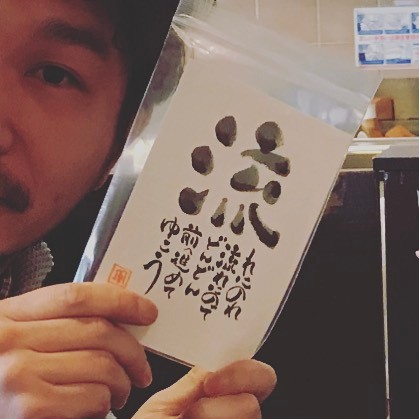 流
れにのれ
流れ
どんどん
前へ進めて
ゆこう